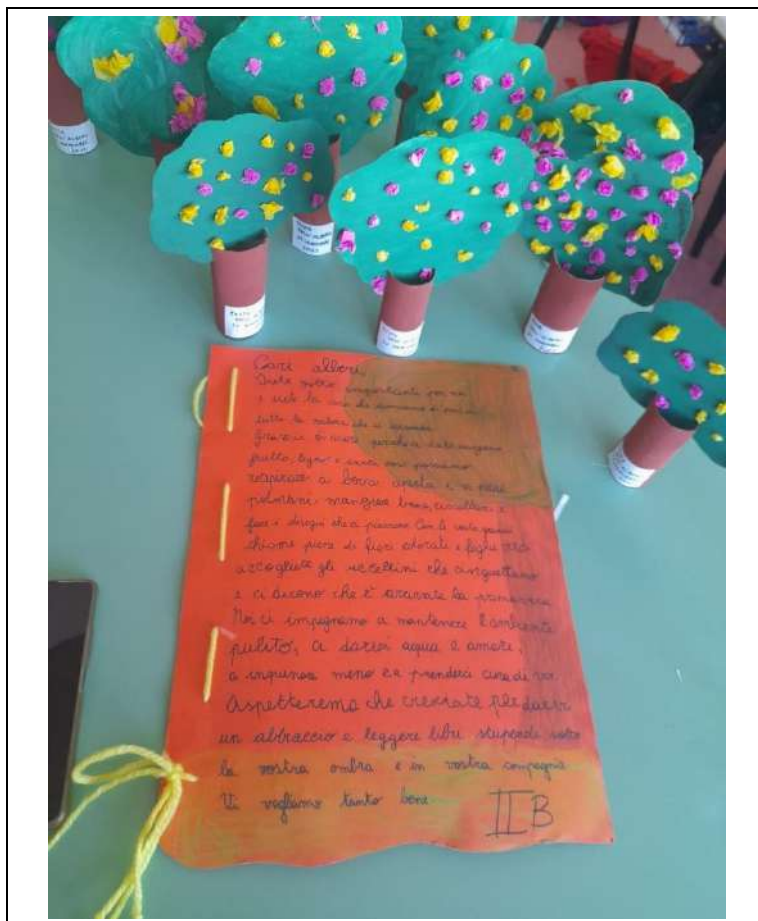 FESTA
DELL'ALBERO
Cari alberi,
Siete molto importanti per noi
e siete la
tutta la natura che ci circonda
Grazie di cuore perché ci date ossigeno
frutta, legno e carta così possiamo
respirare a bocca aperta e a pieni
polmoni, mangiare bene, riscaldarci e
fare i disegni che ci piacciono. Con le vostre grandi
chiome piene di fiori odorati e foglie verdi
accogliete gli uccellini che cinguettano
e ci dicono che è arrivata la primavera
Noi ci impegniamo a mantenere l'ambiente
pulito, a darvi acqua e amore,
a inquinare meno e a prenderci cura di voi.
Aspetteremo che cresciate per darvi
un abbraccio e leggere libri stupendi sotto
la vostra ombra e in vostra compagnia
Vi vogliamo tanto bene
II B